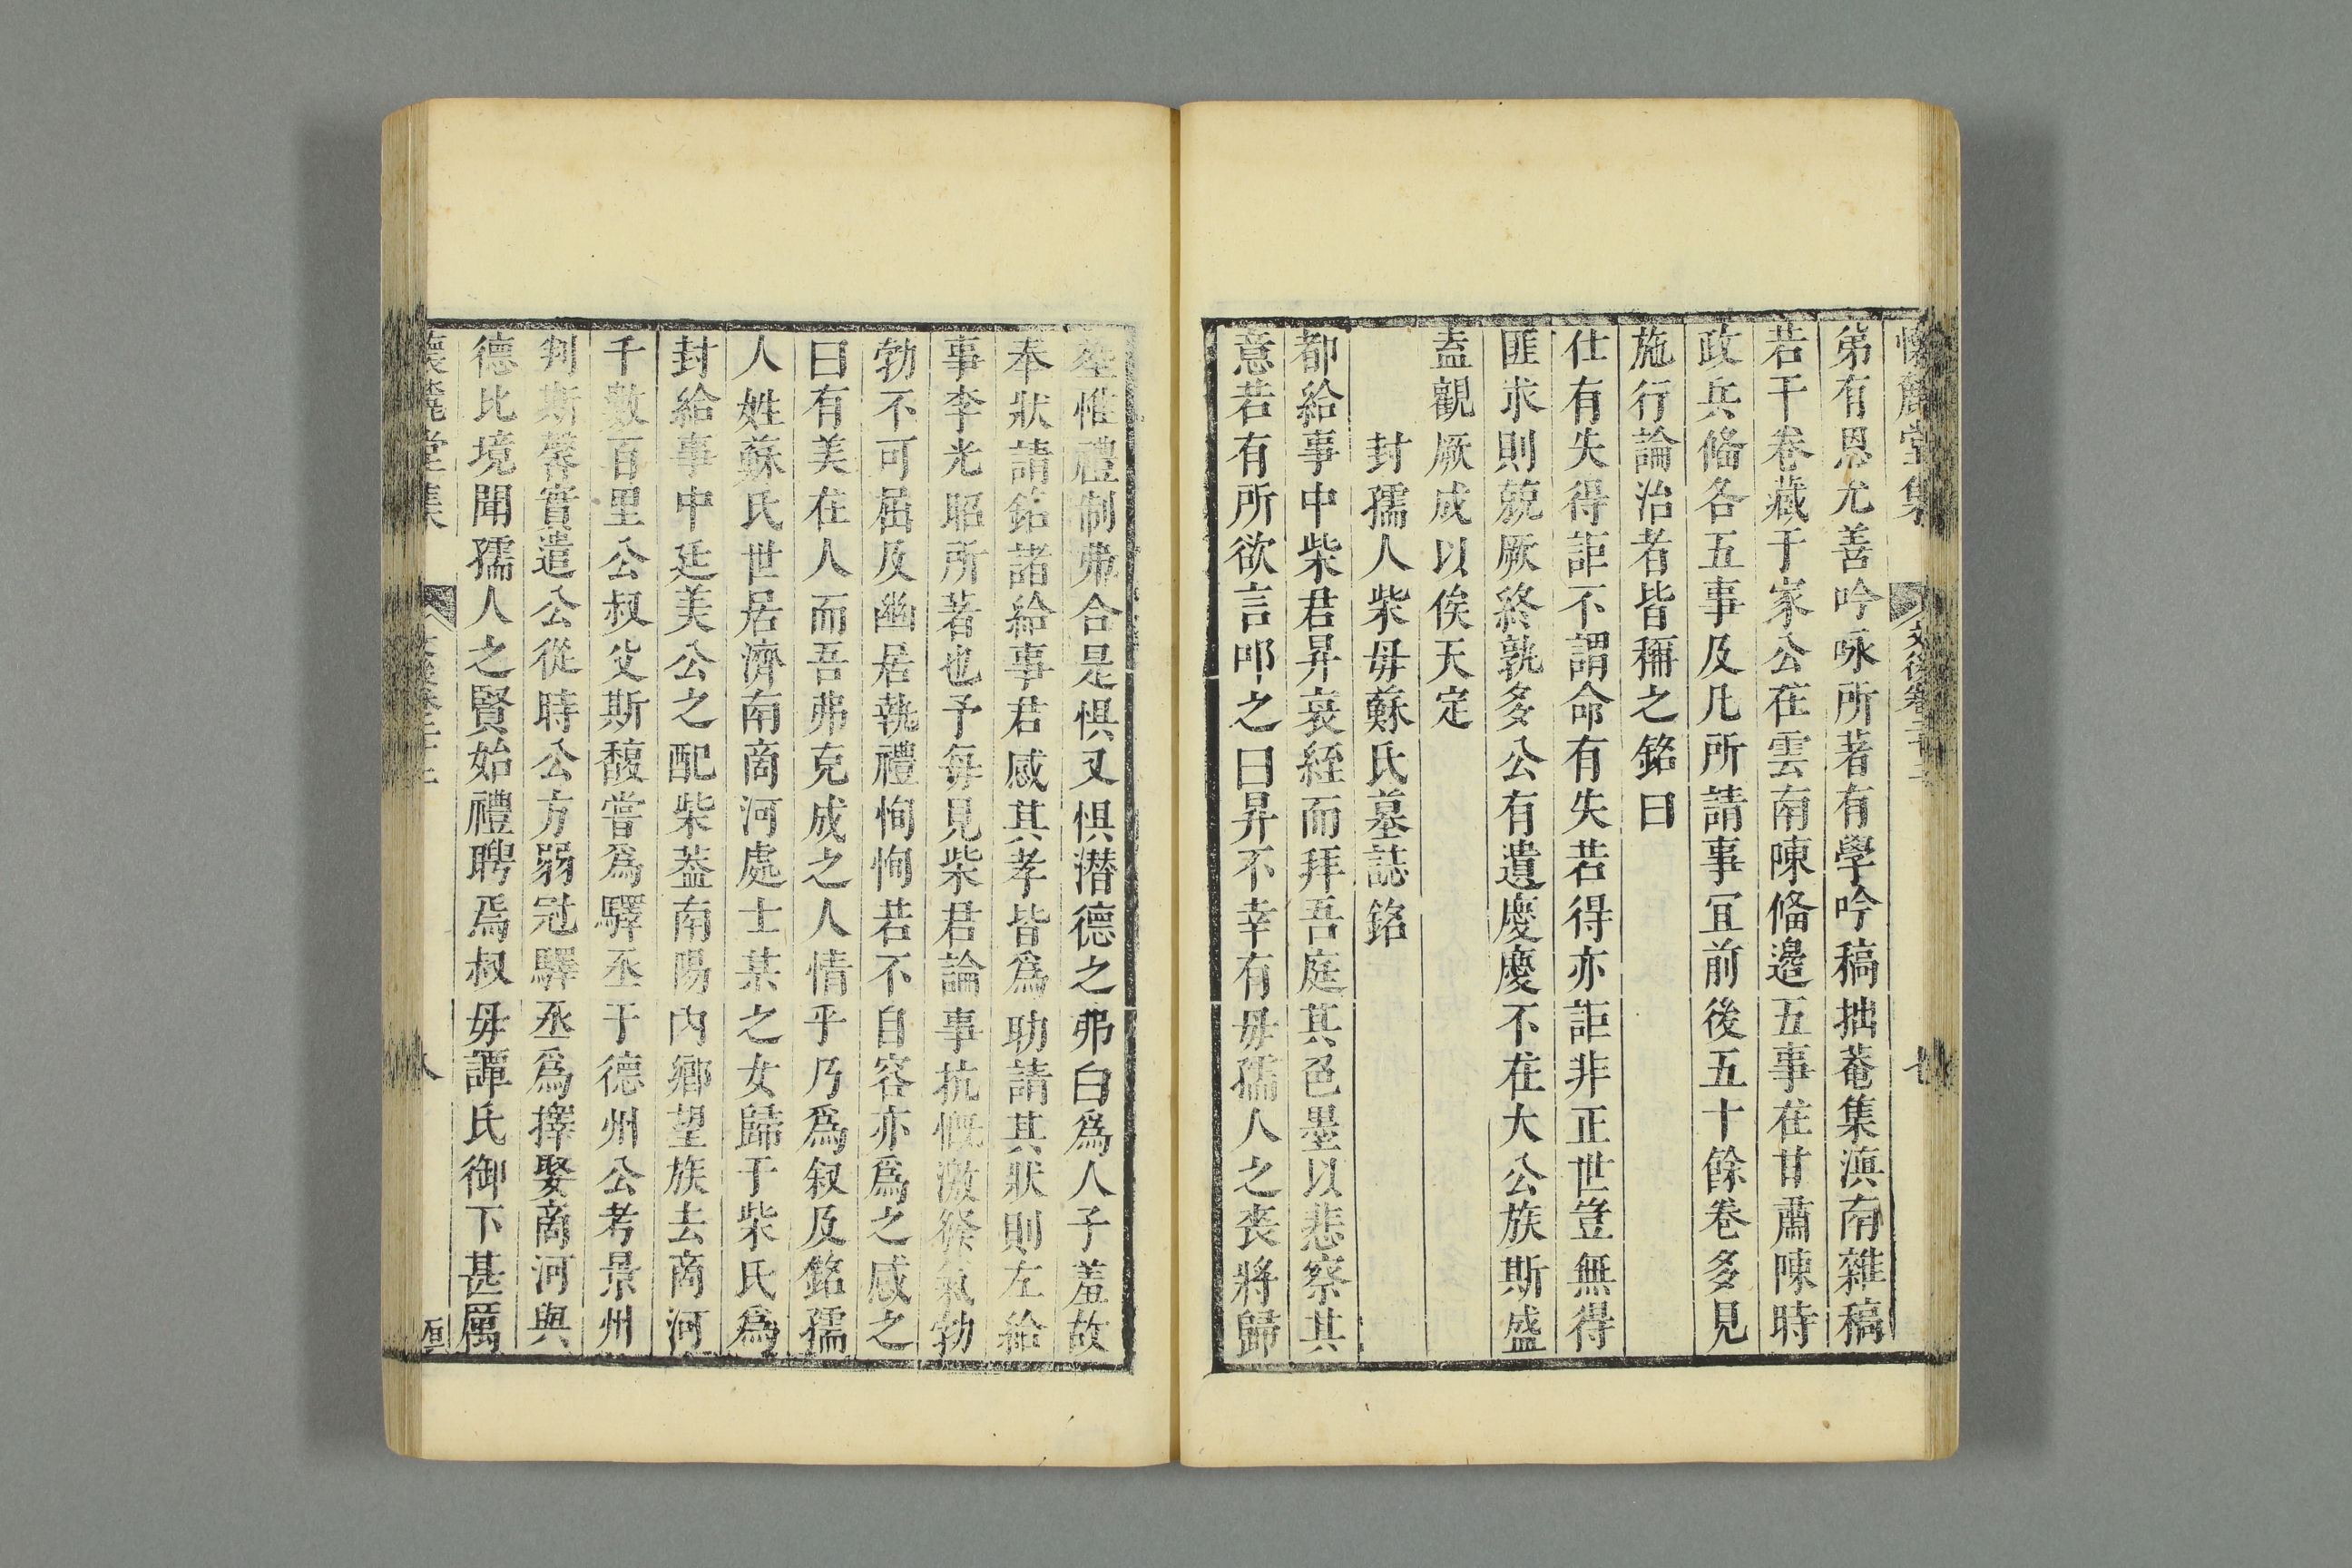 懷麓堂集 文後卷二十三 七
弟有恩尤善吟咏所著有學吟稿拙菴集滇南雜稿
若干卷藏于家公在雲南陳俻邊五事在甘肅陳時
政兵俻各五事及凡所請事冝前後五十餘卷多見
施行論治者皆稱之銘曰
仕有失得詎不謂命有失若得亦詎非正世豈無得
匪求則兢厥終孰多公有遺慶慶不在大公族斯盛
盍觀厥成以俟天定
封孺人柴毋蘇氏墓誌銘
都給事中柴君昇衰絰而拜吾庭其色墨以悲察其
意若有所欲言叩之曰昇不幸有毋孺人之喪將歸
塟惟禮制弗合是惧又惧潛德之弗白爲人子羞故
奉狀請銘諸給事君感其孝皆爲助請其狀則左給
事李光昭所著也予毎見柴君論事抗慨激發氣勃
勃不可屈及幽居執禮恂恂若不自容亦爲之感之
曰有美在人而吾弗克成之人情乎乃爲叙及銘孺
人姓蘇氏世居濟南商河處士某之女歸于柴氏爲
封給事中廷美公之配柴葢南陽内鄉望族去商河
千數百里公叔父斯馥嘗爲驛丞于德州公考景州
判斯馨實遣公從時公方弱冠驛丞爲擇娶商河與
德比境聞孺人之賢始禮聘焉叔毋譚氏御下甚厲
懷麓堂集 八